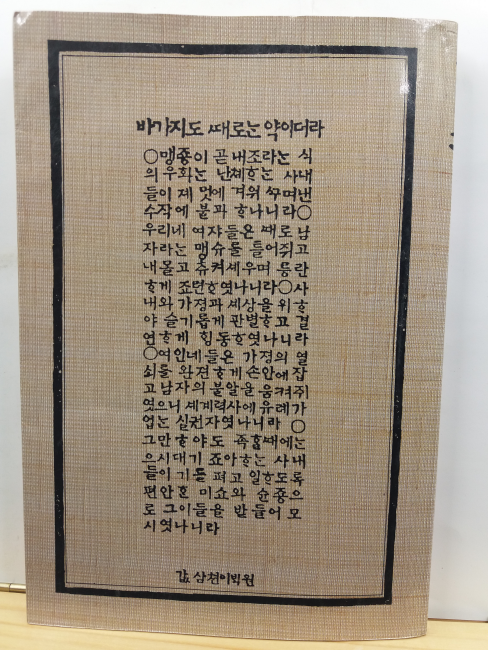 바가지도 때로는 약이더라
○맹종이 곧 내조라는 식
의 우화는 난체하는 사내
들이 제 멋에 겨워 꾸며낸
수작에 불과 하나니라○
우리네 여자들은 때로 남
자라는 맹슈를 틀어쥐고
내몰고 츄켜세우며 등란
하게 죠련하엿나니라○사
내와 가정과 세상을 위하
야 슬기롭게 판별하고 결
연하게 힝동하엿나니라
○여인네들은 가정의 열
쇠를 완젼하게 손안에 잡
고 남자의 불알을 움켜쥐
엿으니 세계력사에 유례가
업는 실권자엿나니라 ○
그만하야도 족함때에는
으시대기 죠아하는 사내
들이 기를 펴고 일하도록
편안호 미쇼와 슌죵으
로 그이들을 받들어 모
시엿나니라
값 삼천이백원